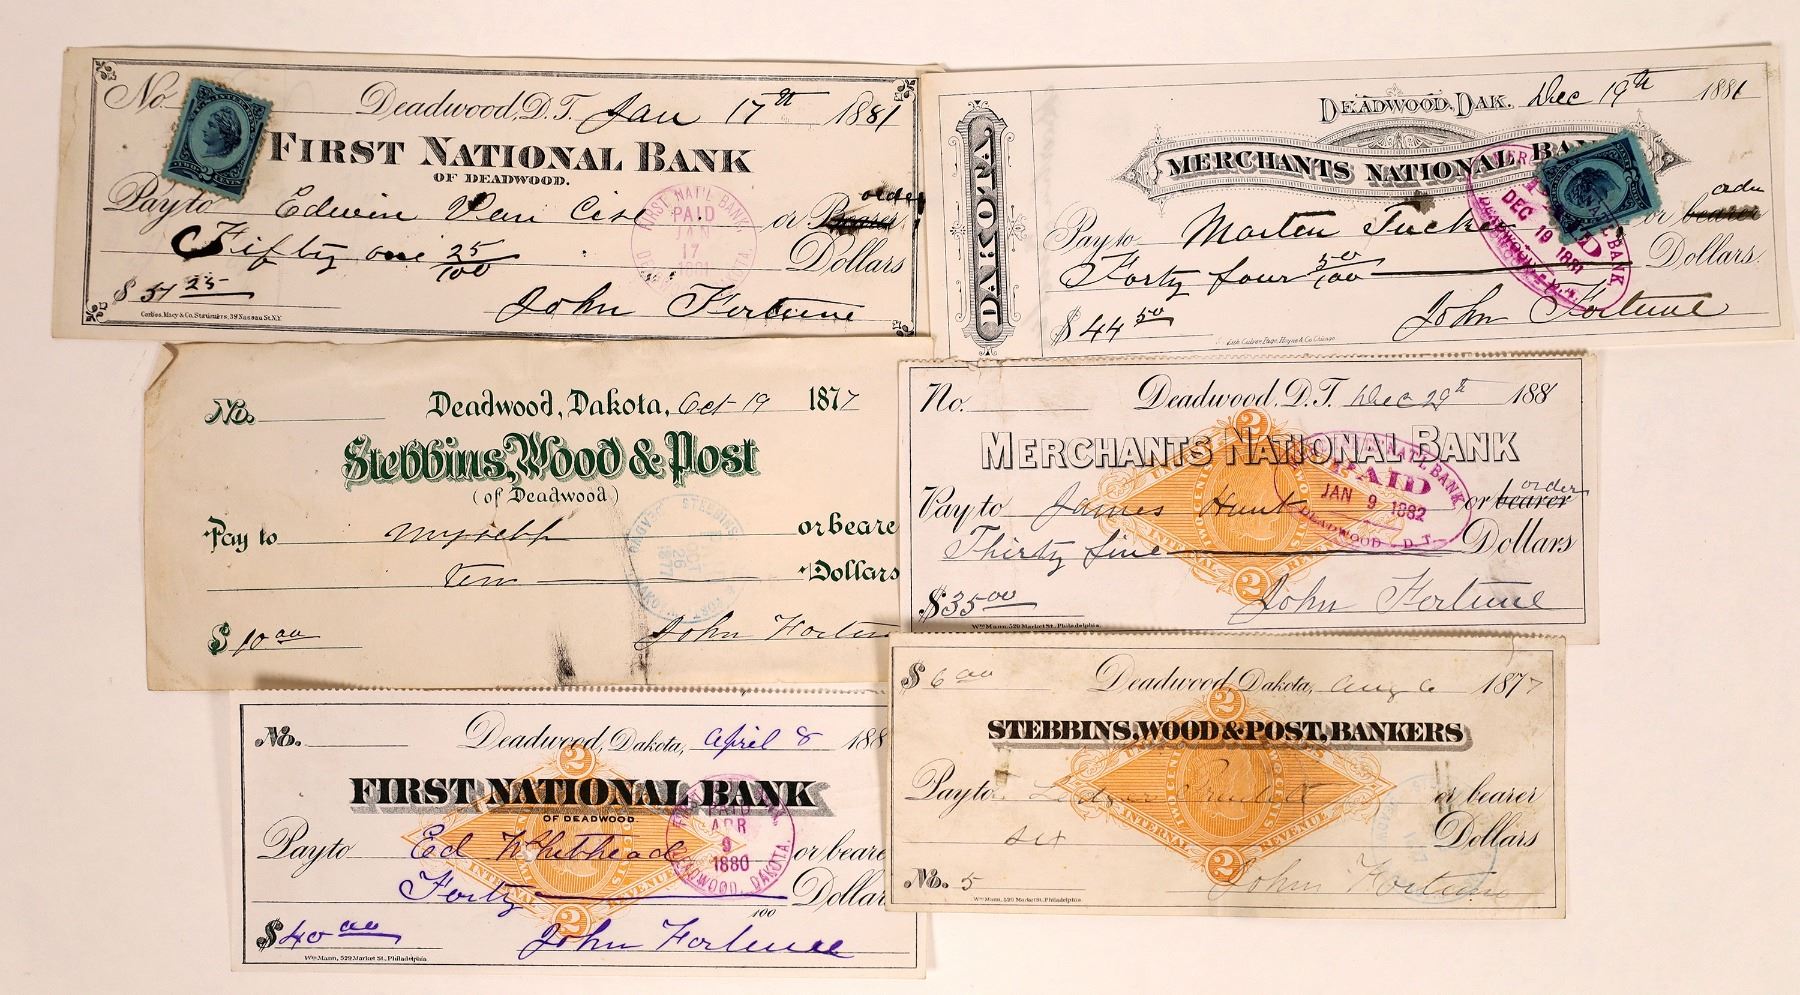 No. Deadwood, D.T. Jan 17th 1881
FIRST NATIONAL BANK
OF DEADWOOD.
order
Pay to Edwin Van Cise or Bearer
Fifty one 25/100 Dollars
$ 51 25
John Fortune
Corlies, Macy & Co. Stationers, 39 Nassau St. N.Y.
FIRST NAT'L BANK,
PAID
JAN
17
1881
DEADWOOD, DAKOTA.
DEADWOOD, DAK. Dec 19th 1881
DAKOTA
MERCHANTS NATIONAL BANK
order
Pay to Morten Tucker or bearer
Forty four 50/100 Dollars.
$ 44 50
John Fortune
Lith. Culver, Page, Hoyne & Co. Chicago
DEC 19 1881
No. Deadwood, Dakota, Oct 19 1877
Stebbins, Wood & Post
(of Deadwood)
Pay to myself or beare
Ten Dollars
$ 10 00
John Fortun
STEBBINS
OCT
26
1877
No. Deadwood, D.T. Dec 29th 1881
MERCHANTS NATIONAL BANK
order
Pay to James Hunt or bearer
Thirty five Dollars
$ 35 00
John Fortune
Wm Mann, 529 Market St. Philadelphia.
2
INTERNAL REVENUE
2
NAT'L BANK
PAID
JAN 9 1882
DEADWOOD D.T.
No. Deadwood, Dakota, April 8 188
FIRST NATIONAL BANK
OF DEADWOOD.
Pay to Ed Whitehead or beare
Forty 100 Dollar
$ 40 00
John Fortune
Wm Mann, 529 Market St. Philadelphia
2
INTERNAL REVENUE
2
PAID
APR
9
1880
DEADWOOD, DAKOTA.
$ 6 00 Deadwood, Dakota, Aug 6 1877
STEBBINS, WOOD & POST, BANKERS
Pay to or bearer
six Dollars
No. 5
John Fortune
Wm Mann, 529 Market St. Philadelphia
2
TWO CENTS
INTERNAL REVENUE
2